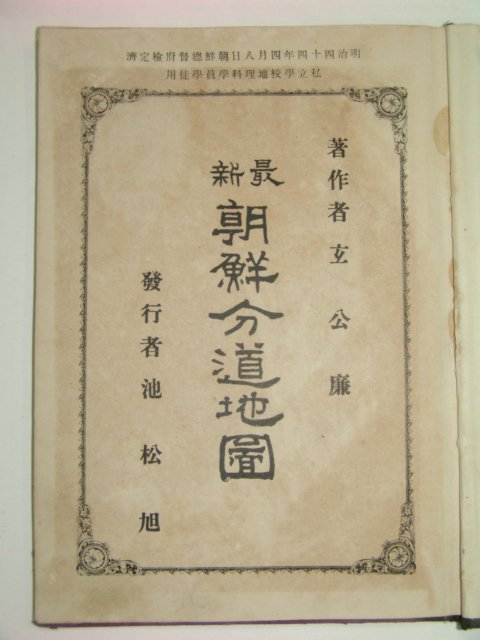 明治四十四年四月八日朝鮮總督府檢定濟
私立學校地理科學員學徒用
著作者 玄公廉
最新
朝鮮分道地圖
發行者 池松旭